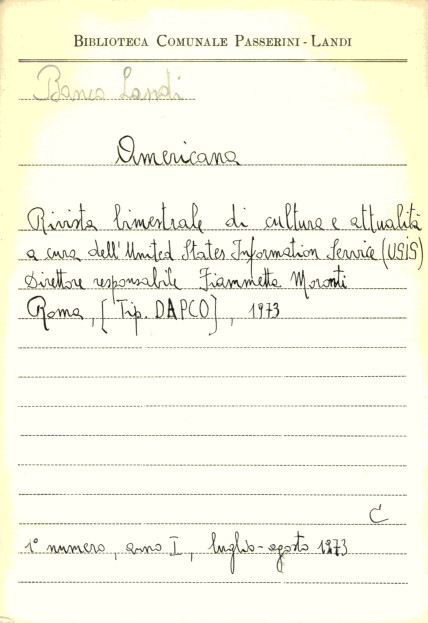 BIBLIOTECA COMUNALE PASSERINI - LANDI
Banco Landi
Americana
Rivista bimestrale di cultura e attualità
a cura dell'United States Information Service (USIS)
Direttore responsabile Fiammetta Moronti
Roma, [Tip. DAPCO], 1973
C
1° numero, anno I, luglio-agosto 1973